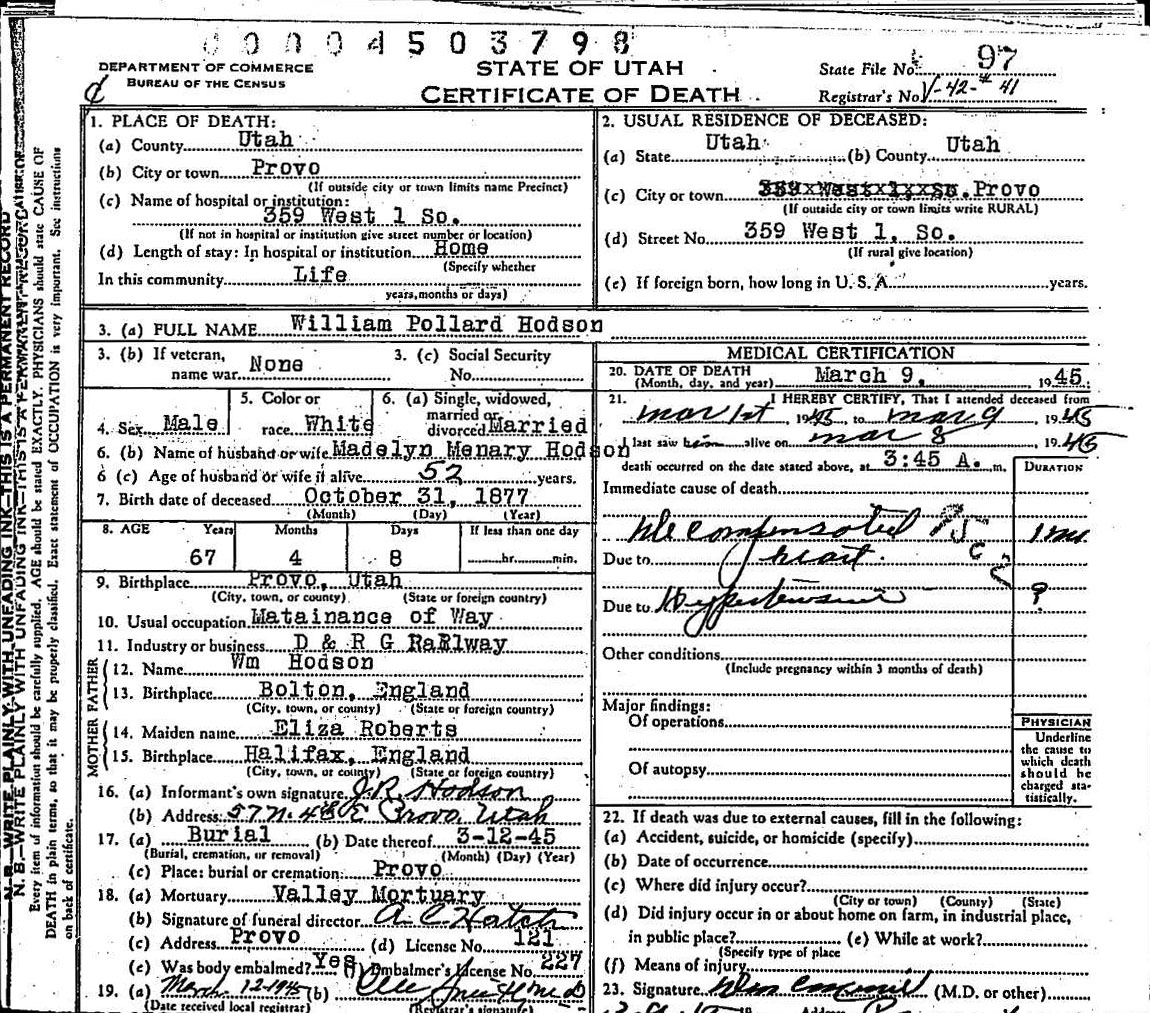 0 0 0 0 4 5 0 3 7 9 8
DEPARTMENT OF COMMERCE
BUREAU OF THE CENSUS
STATE OF UTAH
CERTIFICATE OF DEATH
State File No. 97
Registrar's No. V-42-# 41
1. PLACE OF DEATH:
(a) County Utah
(b) City or town Provo
(If outside city or town limits name Precinct)
(c) Name of hospital or institution:
359 West 1 So.
(If not in hospital or institution give street number or location)
(d) Length of stay: In hospital or institution Home
(Specify whether
In this community Life
years, months or days)
2. USUAL RESIDENCE OF DECEASED:
(a) State Utah (b) County Utah
(c) City or town Provo
(If outside city or town limits write RURAL)
(d) Street No. 359 West 1, So.
(If rural give location)
(e) If foreign born, how long in U. S. A. years.
3. (a) FULL NAME William Pollard Hodson
3. (b) If veteran, name war None
3. (c) Social Security No.
4. Sex Male
5. Color or race White
6. (a) Single, widowed, married or divorced Married
6. (b) Name of husband or wife Madelyn Menary Hodson
6 (c) Age of husband or wife if alive 52 years.
7. Birth date of deceased October 31, 1877
(Month) (Day) (Year)
8. AGE Years Months Days If less than one day
67 4 8 hr. min.
9. Birthplace Provo, Utah
(City, town, or county) (State or foreign country)
10. Usual occupation Matainance of Way
11. Industry or business D & R G RaRlway
FATHER
12. Name Wm Hodson
13. Birthplace Bolton, England
(City, town, or county) (State or foreign country)
MOTHER
14. Maiden name Eliza Roberts
15. Birthplace Halifax, England
(City, town, or county) (State or foreign country)
16. (a) Informant's own signature J.R. Hodson
(b) Address 57 N. 4th E Provo Utah
17. (a) Burial (b) Date thereof 3-12-45
(Burial, cremation, or removal) (Month) (Day) (Year)
(c) Place: burial or cremation Provo
18. (a) Mortuary Valley Mortuary
(b) Signature of funeral director A C Hatch
(c) Address Provo (d) License No. 121
(e) Was body embalmed? Yes (f) Embalmer's License No. 227
19. (a) March 12-1945 (b)
(Date received local registrar) (Registrar's signature)
MEDICAL CERTIFICATION
20. DATE OF DEATH
(Month, day, and year) March 9, 1945.
21. I HEREBY CERTIFY, That I attended deceased from
Mar 1st 1945, to mar 9 1945
I last saw him alive on mar 8 1945
death occurred on the date stated above, at 3:45 A. m.
DURATION
Immediate cause of death
Decompensated
Due to heart.
Due to Hypertension ?
Other conditions
(Include pregnancy within 3 months of death)
Major findings:
Of operations
Of autopsy
PHYSICIAN
Underline
the cause to
which death
should be
charged sta-
tistically.
22. If death was due to external causes, fill in the following:
(a) Accident, suicide, or homicide (specify)
(b) Date of occurrence
(c) Where did injury occur?
(City or town) (County) (State)
(d) Did injury occur in or about home on farm, in industrial place,
in public place? (e) While at work?
(Specify type of place
(f) Means of injury
23. Signature (M.D. or other)
N. B.—WRITE PLAINLY WITH UNFADING INK—THIS IS A PERMANENT RECORD
Every item of information should be carefully supplied. AGE should be stated EXACTLY. PHYSICIANS should state CAUSE OF
DEATH in plain terms, so that it may be properly classified. Exact statement of OCCUPATION is very important. See instructions
on back of certificate.